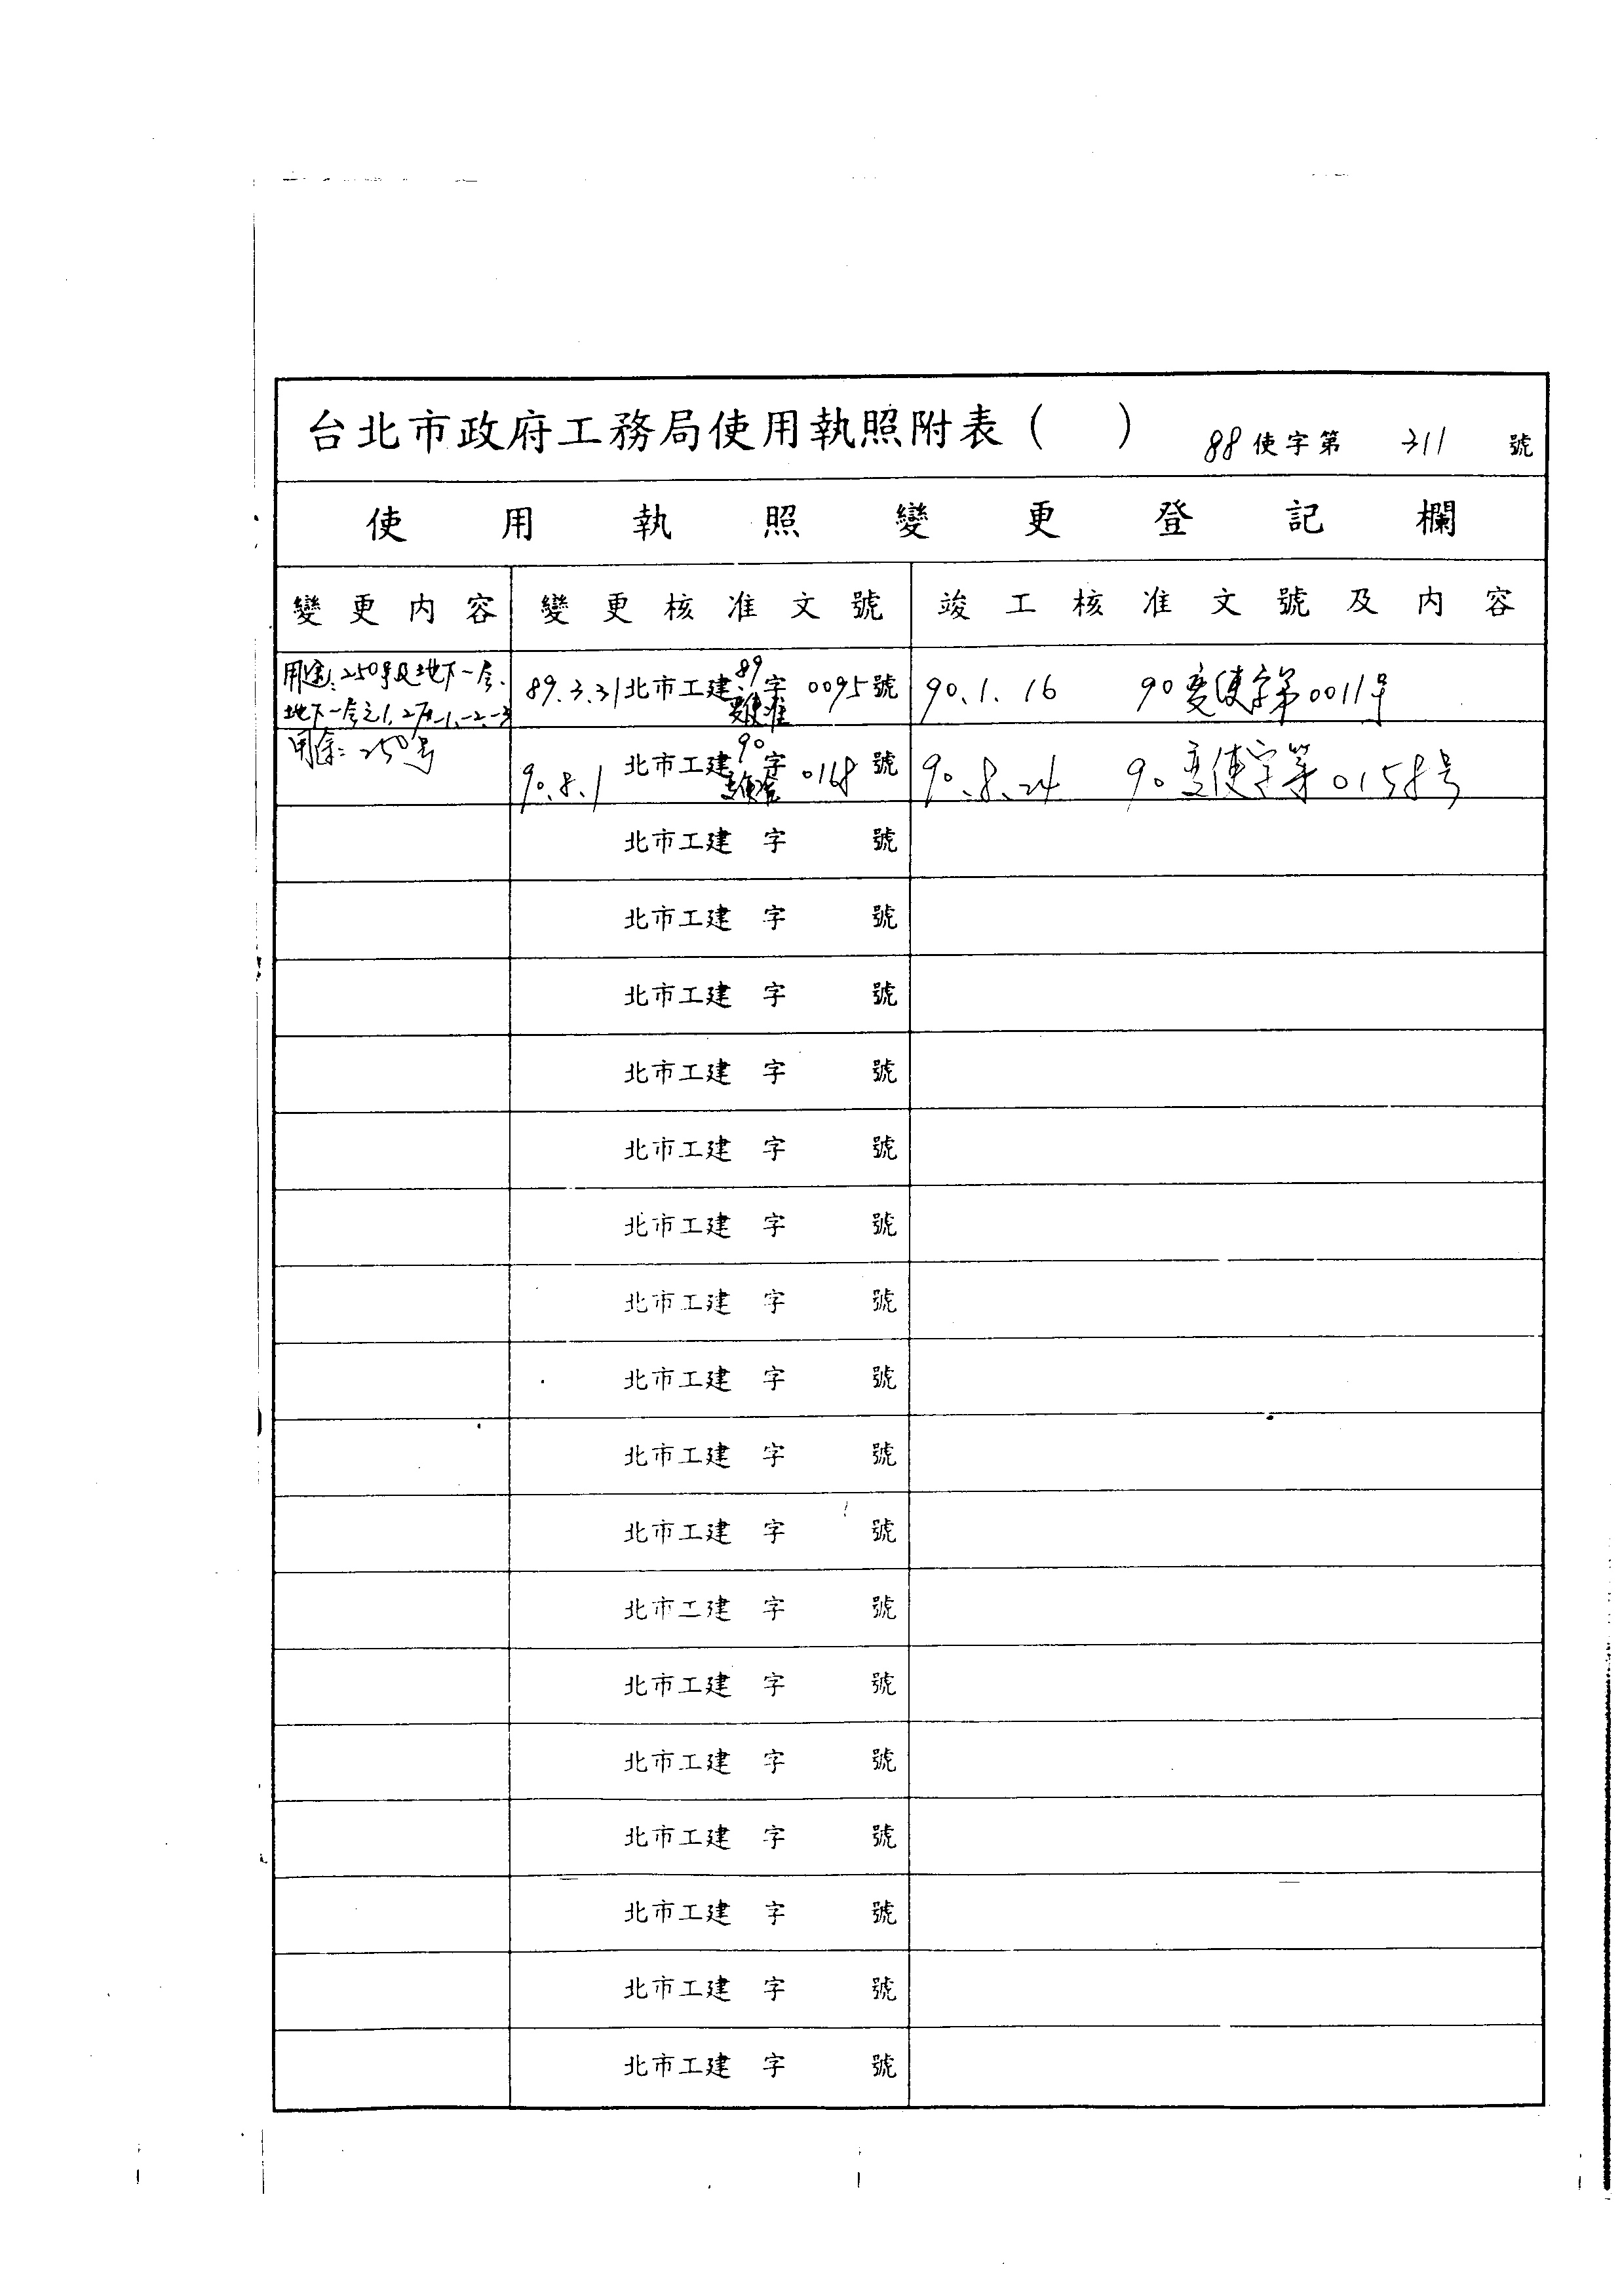 台北市政府工務局使用執照附表（　）　88使字第　311　號
使用執照變更登記欄
變更內容　變更核准文號　竣工核准文號及內容
用途:250号及地下一层.
地下一层之1.2
89.3.31北市工建89字0095號
變使准
90.1.16　90变使字第0011号
用途:250号
90.8.1北市工建90字0168號
90.8.24　90变使字第0158号
北市工建　字　號
北市工建　字　號
北市工建　字　號
北市工建　字　號
北市工建　字　號
北市工建　字　號
北市工建　字　號
北市工建　字　號
北市工建　字　號
北市工建　字　號
北市工建　字　號
北市工建　字　號
北市工建　字　號
北市工建　字　號
北市工建　字　號
北市工建　字　號
北市工建　字　號